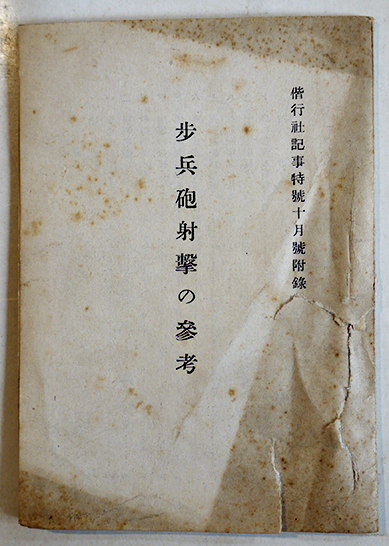 偕行社記事特號十月號附錄
步兵砲射擊の參考